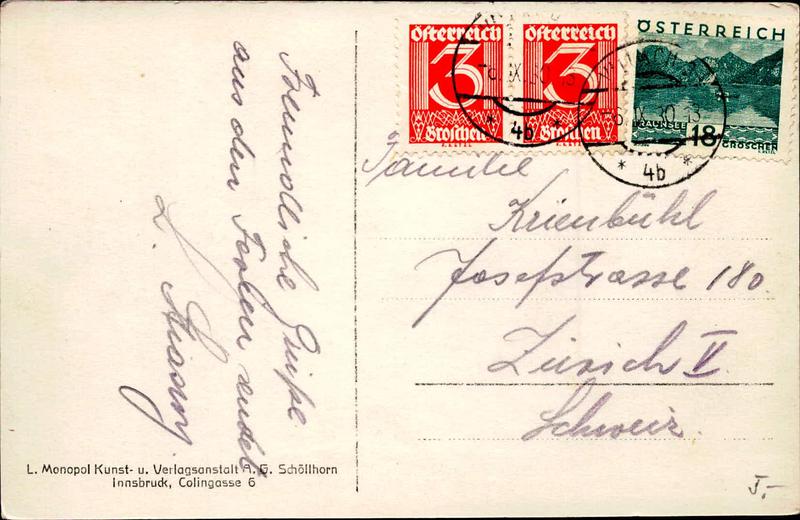 Freundliche Grüße
aus den Ferien sendet
L.
Österreich
3
Groschen
Österreich
3
Groschen
ÖSTERREICH
TRAUNSEE
18
GROSCHEN
IX.30
4b
IX.30 13
4b
Familie
Krienbühl
Josefstrasse 180.
Zürich V.
Schweiz.
L. Monopol Kunst- u. Verlagsanstalt A. G. Schöllhorn
Innsbruck, Colingasse 6
5,-